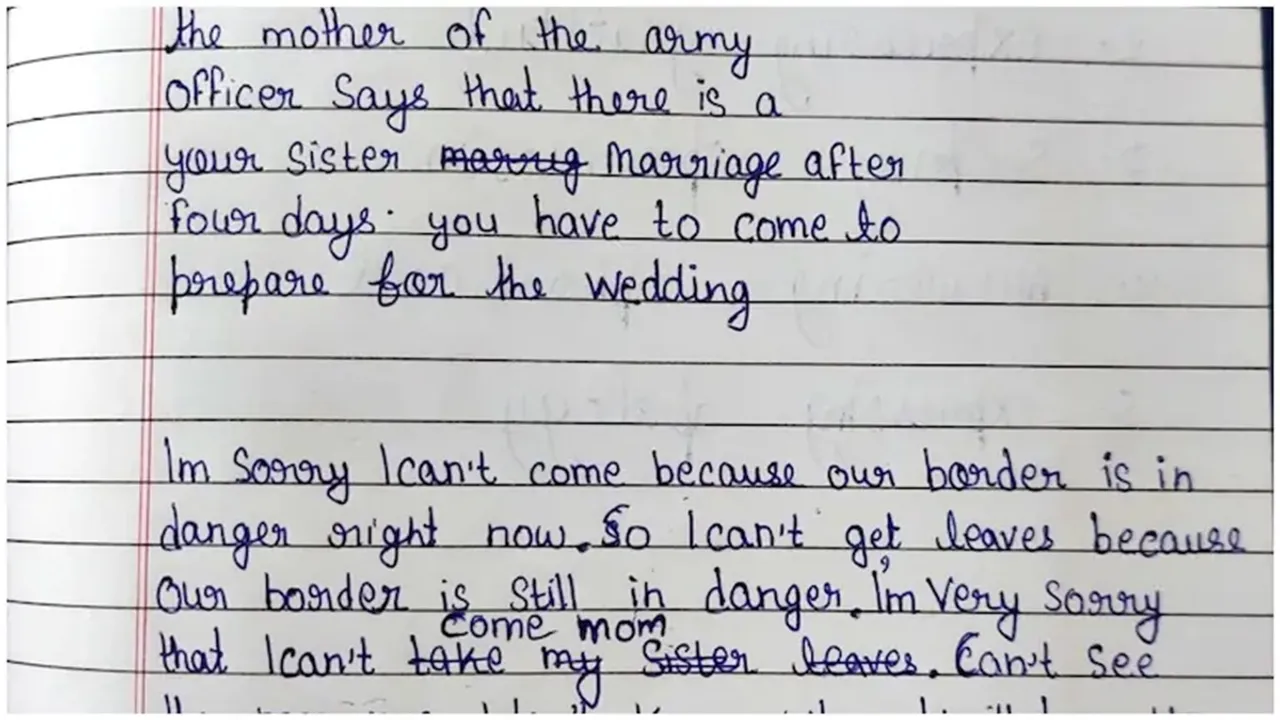 the mother of the army
officer says that there is a
your sister marrug Marriage after
four days. you have to come to
prepare for the wedding
Im sorry I can't come because our border is in
danger right now. So I can't get leaves because
our border is still in danger. I'm very sorry
come mom
that I can't take my sister leaves. Can't see